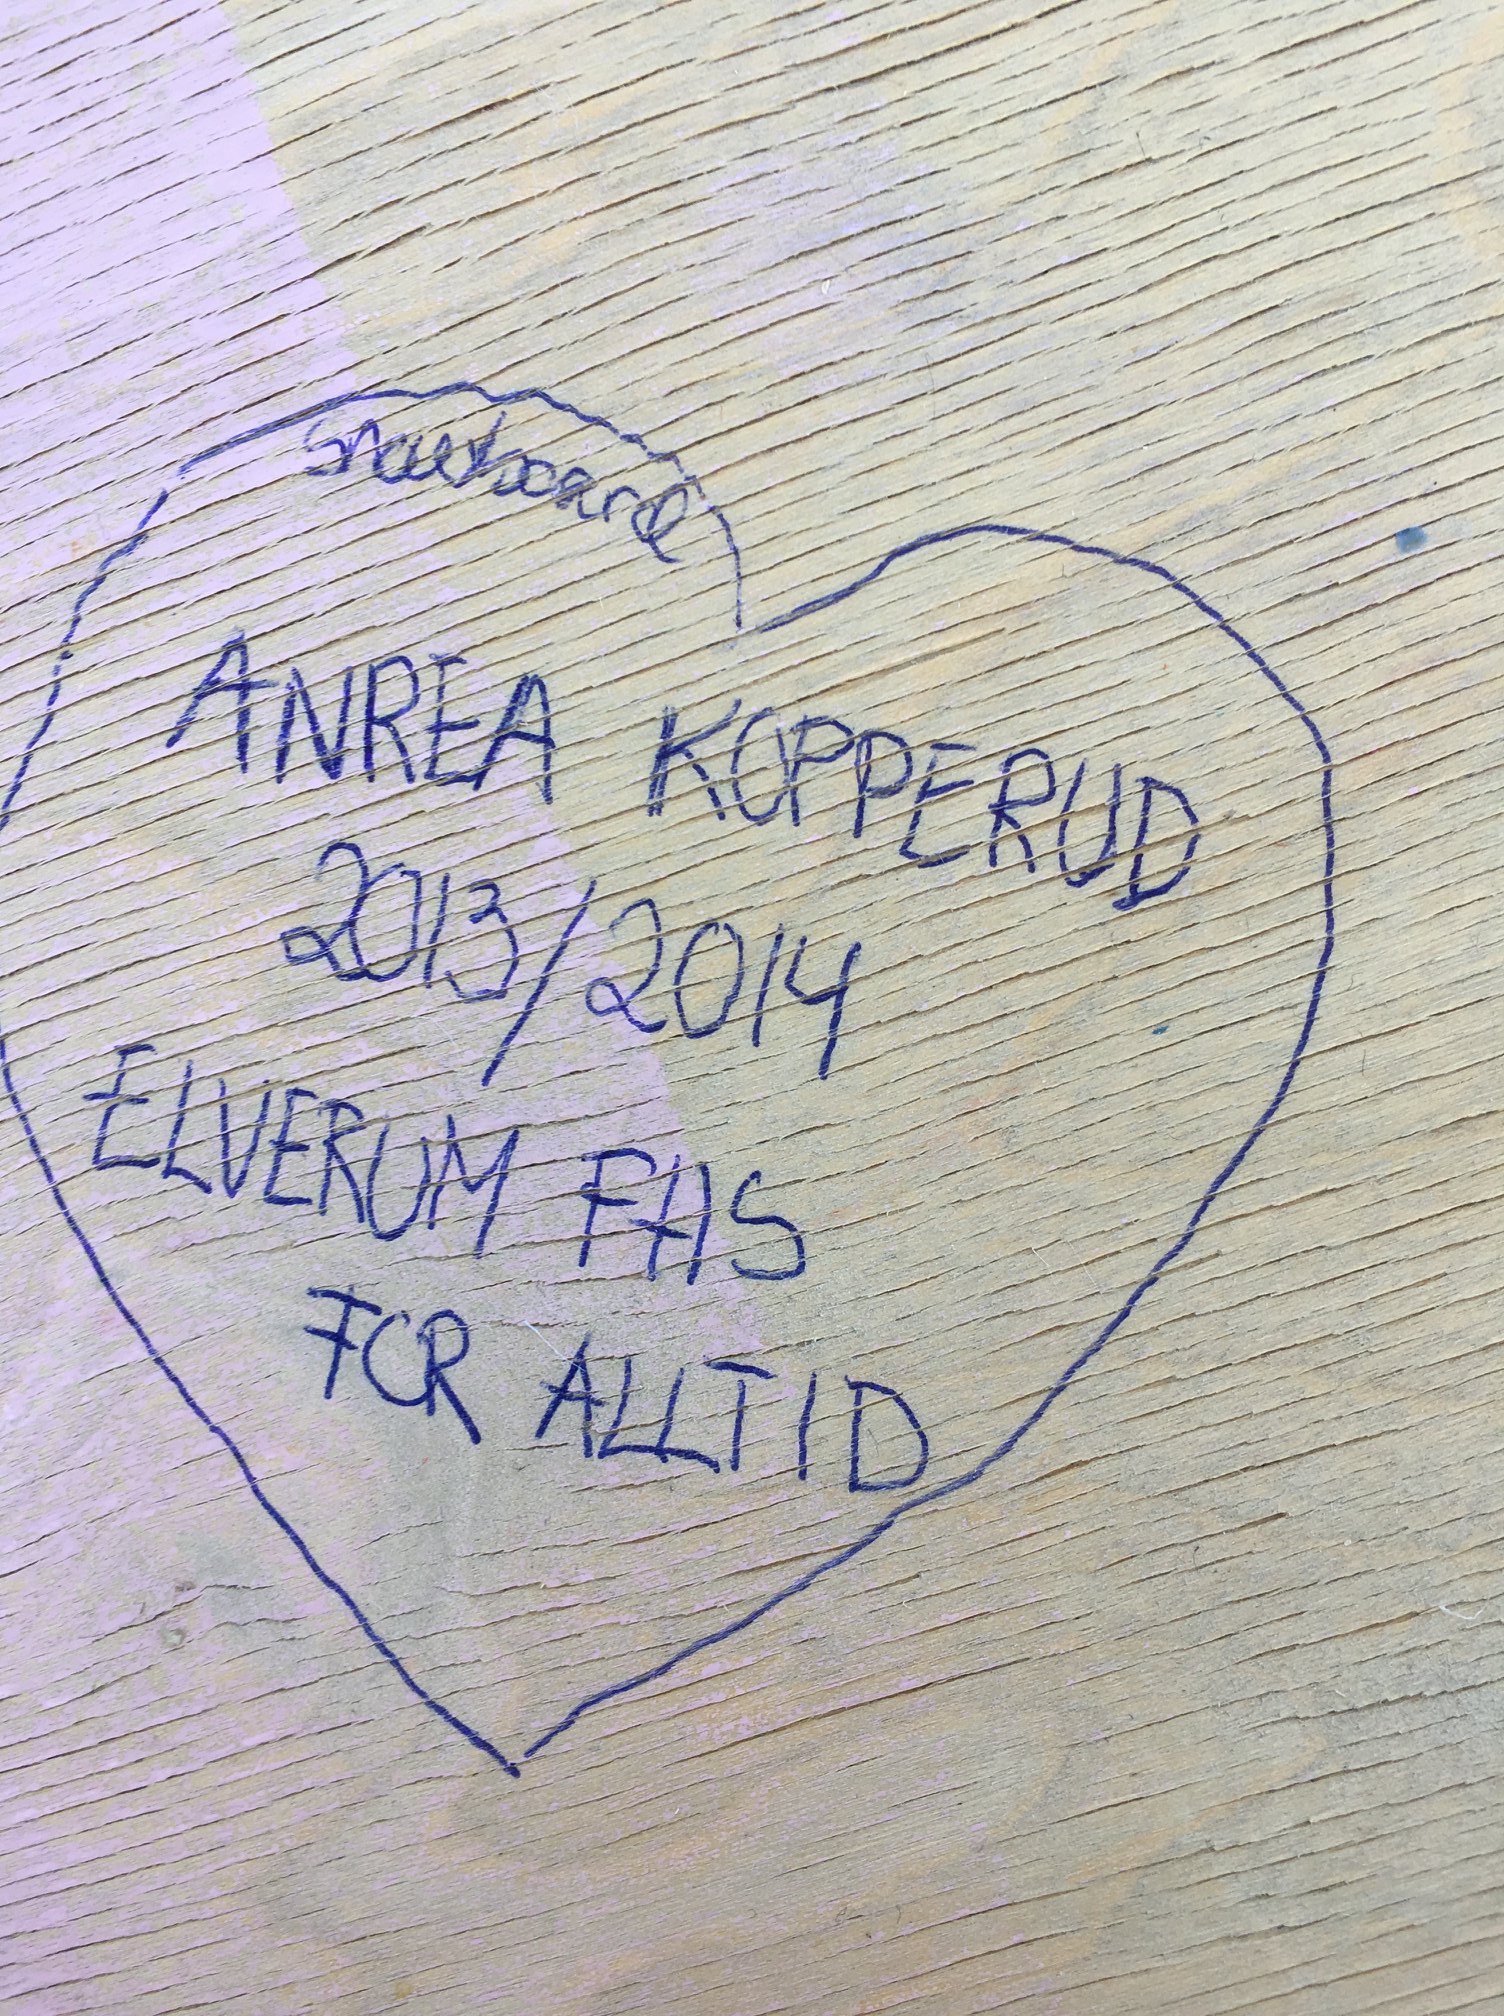 Snowboard
ANREA KOPPERUD
2013/2014
ELVERUM FHS
FOR ALLTID